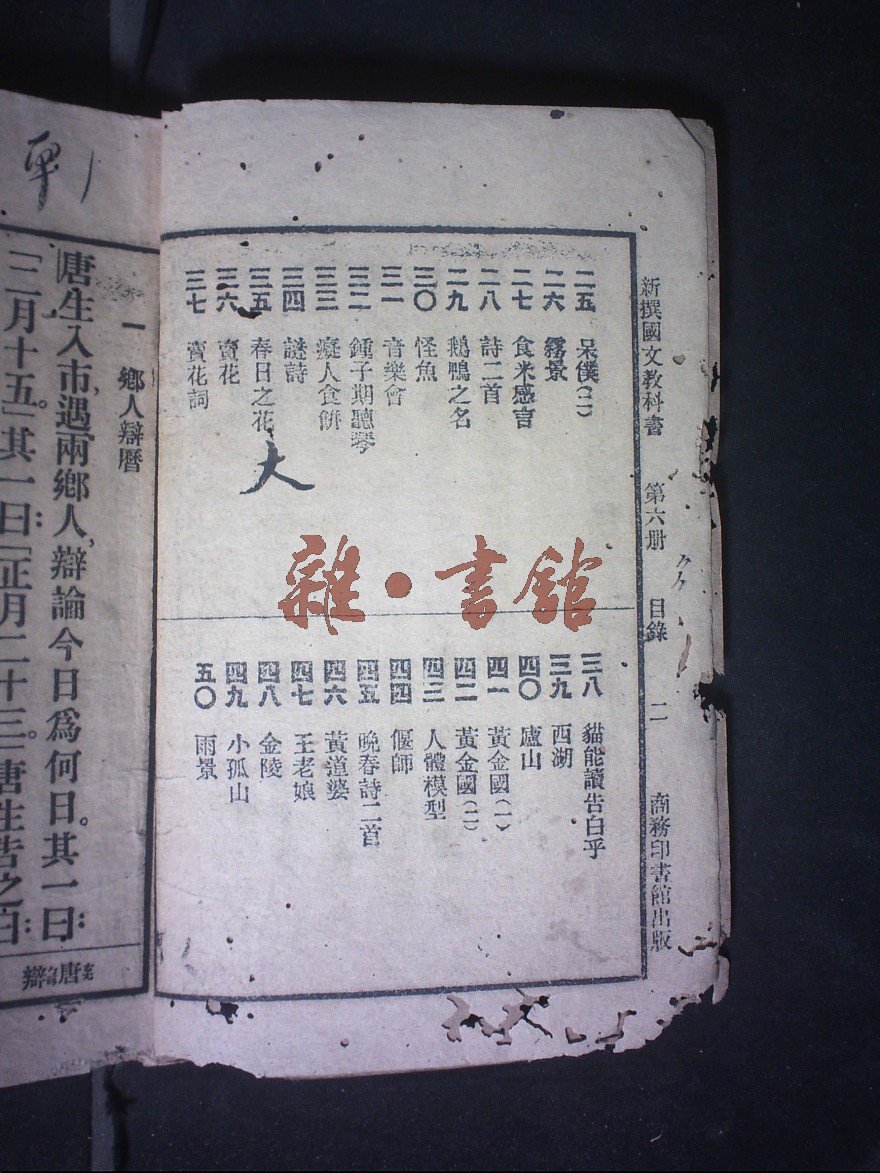 新撰國文教科書 第六册 目錄 二 商務印書館出版
二五 呆僕(二)
二六 霧景
二七 食米感言
二八 詩二首
二九 鵝鴨之名
三〇 怪魚
三一 音樂會
三二 鍾子期聽琴
三三 癡人食餅
三四 謎詩
三五 春日之花
三六 賣花
三七 賣花詞
大
雜·書館
三八 貓能讀告白乎
三九 西湖
四〇 廬山
四一 黃金國(一)
四二 黃金國(二)
四三 人體模型
四四 偃師
四五 晚春詩二首
四六 黃道婆
四七 王老娘
四八 金陵
四九 小孤山
五〇 雨景
一 鄉人辯曆
唐生入市,遇兩鄉人,辯論今日爲何日。其一曰:
「二月十五。」其一曰:「正月二十三。」唐生告之曰:
唐
辯